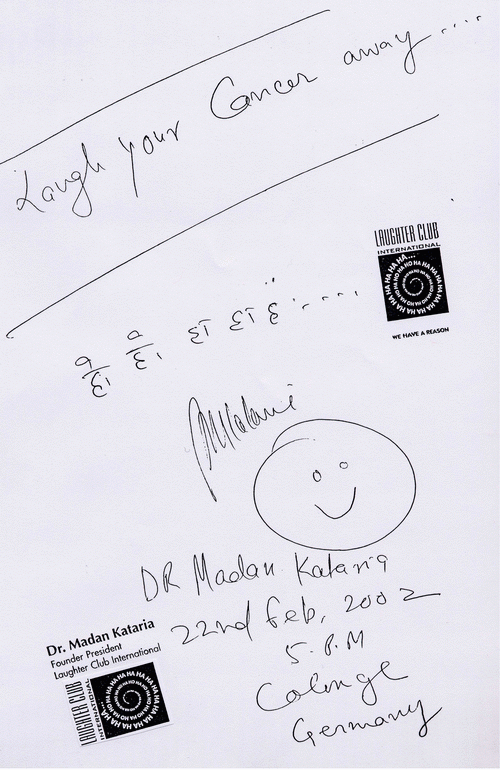 Laugh your Cancer away....
LAUGHTER CLUB
INTERNATIONAL
HA HA HA HA HA HA HA HA HA HA HA
WE HAVE A REASON
DR Madan Kataria
22nd Feb, 2002
5. P.M
Colnge
Germany
Dr. Madan Kataria
Founder President
Laughter Club International
LAUGHTER CLUB
INTERNATIONAL
HA HA HA HA HA HA HA HA HA HA HA